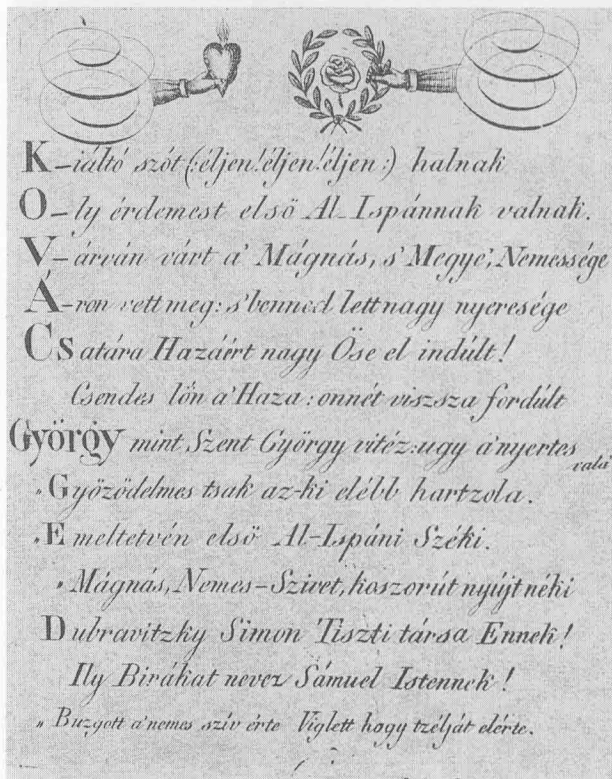 K–iáltó szót (:éljen! éljen! éljen:) halnak
O–ly érdemest első Al-Ispánnak valnak.
V–árván várt a' Mágnás, s' Megye', Nemessége
Á–ron vett meg: s' benned lett nagy nyeresége
Csatára Hazáért nagy Őse el indúlt!
Csendes lőn a' Haza: onnét viszsza fordúlt
György mint Szent György vitéz: ugy a' nyertes valá
„Győződelmes tsak az-ki elébb hartzola.
„Emeltetvén első Al-Ispáni Széki.
„Mágnás, Nemes-Szivet, koszorút nyújt néki
Dubravitzky Simon Tiszti társa Ennek!
Ily Birákat nevez Sámuel Istennek!
„Buzgott a' nemes szív érte Viglett hogy tzélját elérte.